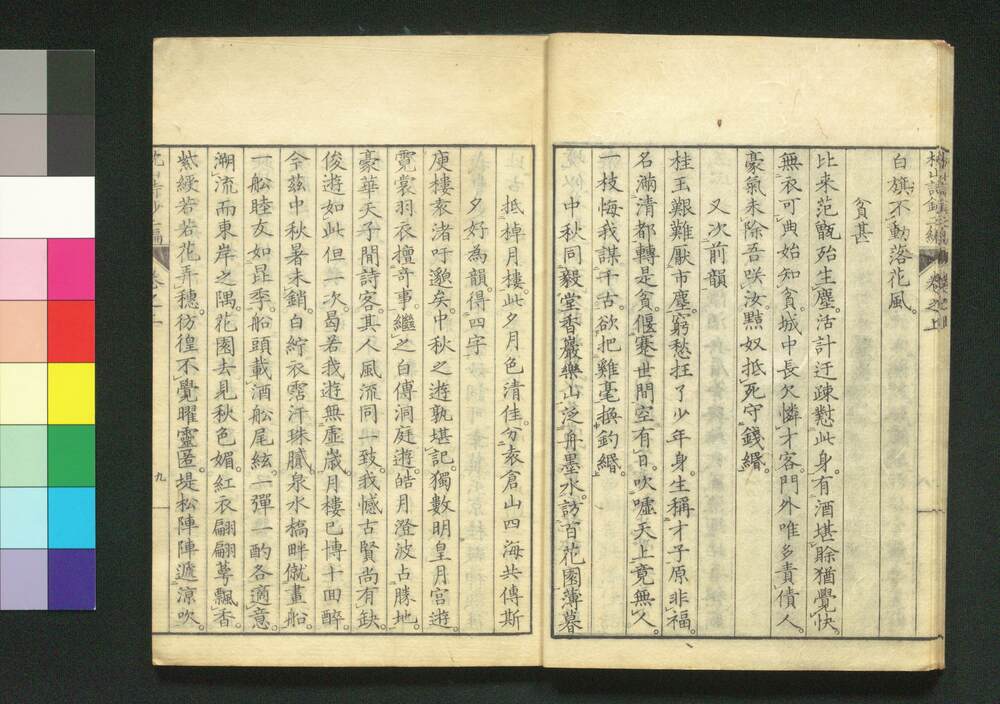 白旗不動落花風。
貧甚
比来范甑殆生塵。活計迂疎懟此身。有酒堪賒猶覺快。
無衣可典始知貧。城中長欠憐才客。門外唯多責債人。
豪氣未除吾咲汝。黠奴抵死守錢緡。
又次前韻
桂玉艱難厭市塵。窮愁抂了少年身。生稱才子原非福。
名滿清都轉是貧。偃蹇世間空有日。吹噓天上竟無人。
一枝悔我謀千古。欲把雞毫換釣緡。
中秋同毅堂香巖樂山泛舟墨水。訪百花園薄暮
抵棹月樓。此夕月色清佳。分袁倉山四海共傳斯
夕好為韻。得四字
庾樓袁渚吁邈矣。中秋之遊孰堪記。獨數明皇月宮遊。
霓裳羽衣擅奇事。繼之白傅洞庭遊。皓月澄波占勝地。
豪華天子閒詩客。其人風流同一致。我憾古賢尚有缺。
俊遊如此但一次。曷若我遊無虛歲。月樓已博十回醉。
今茲中秋暑未銷。白紵衣霑汗珠膩。泉水橋畔僦畫船。
一船睦友如昆季。船頭載酒船尾絃。一彈一酌各適意。
溯流而東岸之隅。花園去見秋色媚。紅衣翩翩蕚飄香。
紫緌若若花弄穗。彷徨不覺曜靈匿。堤松陣陣遞涼吹。
卷之上
九